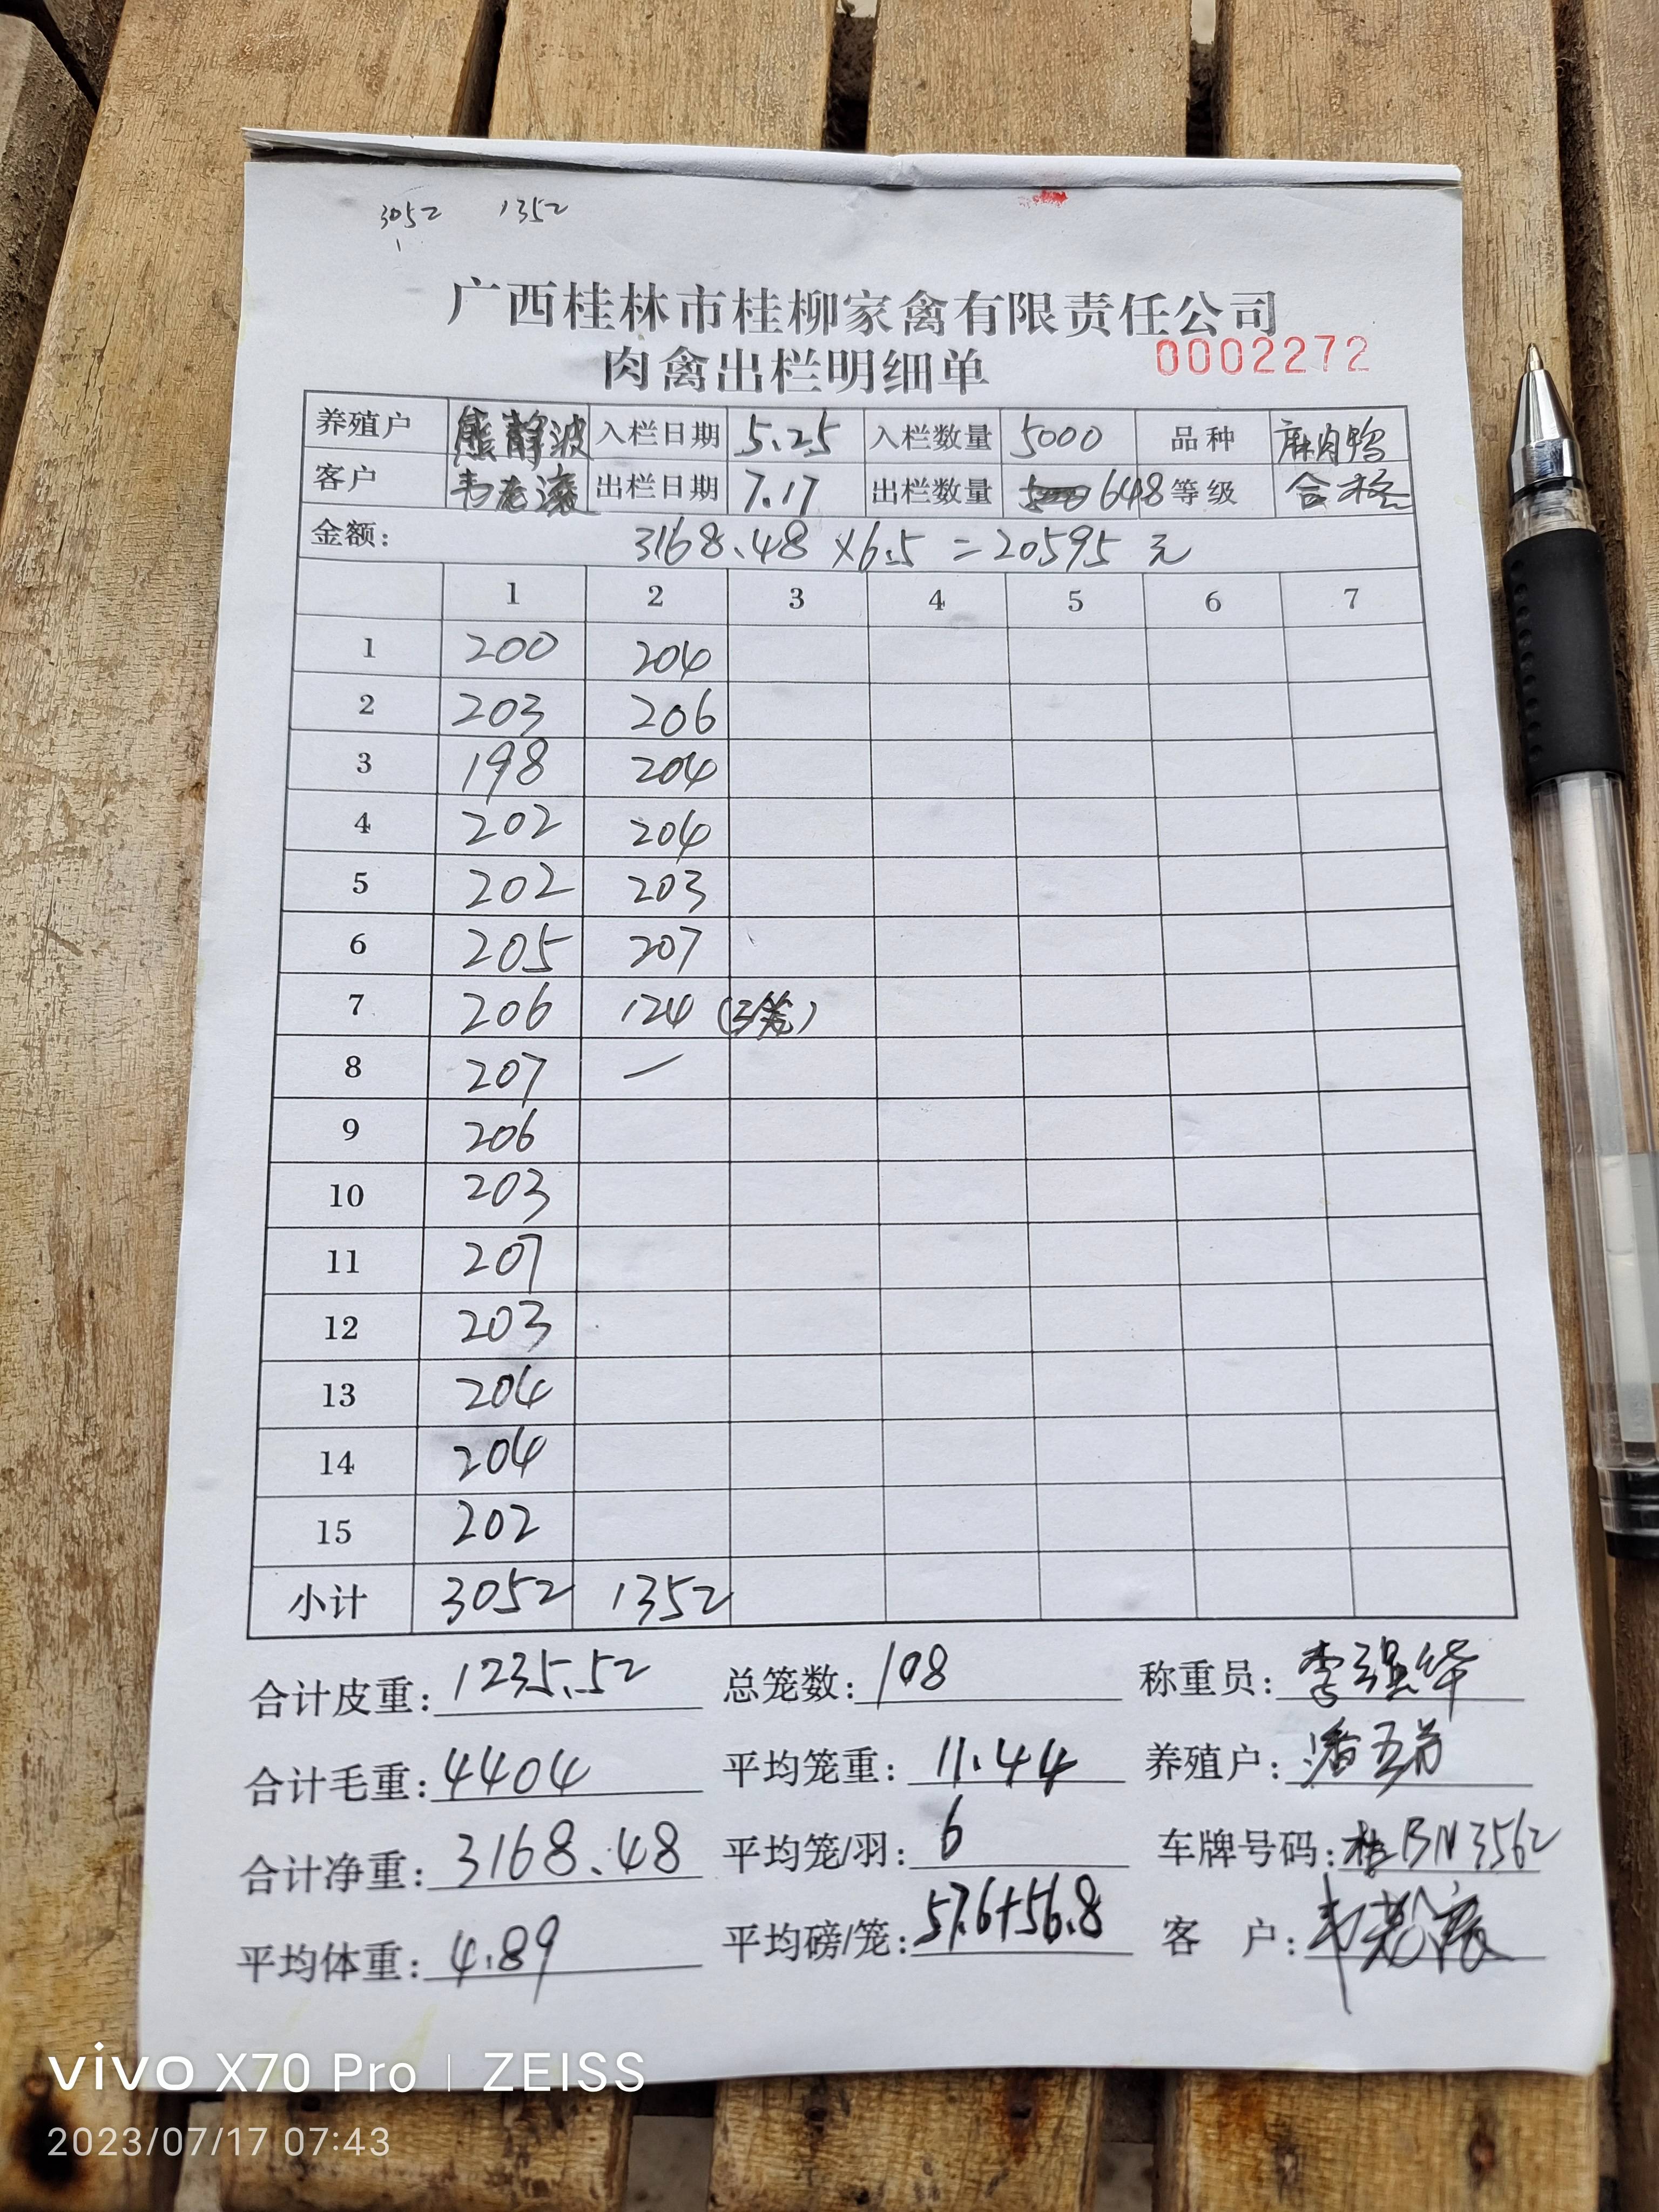 3052 1352
广西桂林市桂柳家禽有限责任公司
肉禽出栏明细单 0002272
养殖户 熊静波 入栏日期 5.25 入栏数量 5000 品种 麻肉鸭
客户 韦老滚 出栏日期 7.17 出栏数量 648 等级 合格
金额: 3168.48×6.5=20595元
1 2 3 4 5 6 7
1 200 204
2 203 206
3 198 204
4 202 204
5 202 203
6 205 207
7 206 124 (3笼)
8 207 —
9 206
10 203
11 207
12 203
13 204
14 204
15 202
小计 3052 1352
合计皮重: 1235.52 总笼数: 108 称重员: 李强华
合计毛重: 4404 平均笼重: 11.44 养殖户: 潘
合计净重: 3168.48 平均笼/羽: 6 车牌号码: 桂BN3562
平均体重: 4.89 平均磅/笼: 57.6+56.8 客 户:
vivo X70 Pro | ZEISS
2023/07/17 07:43